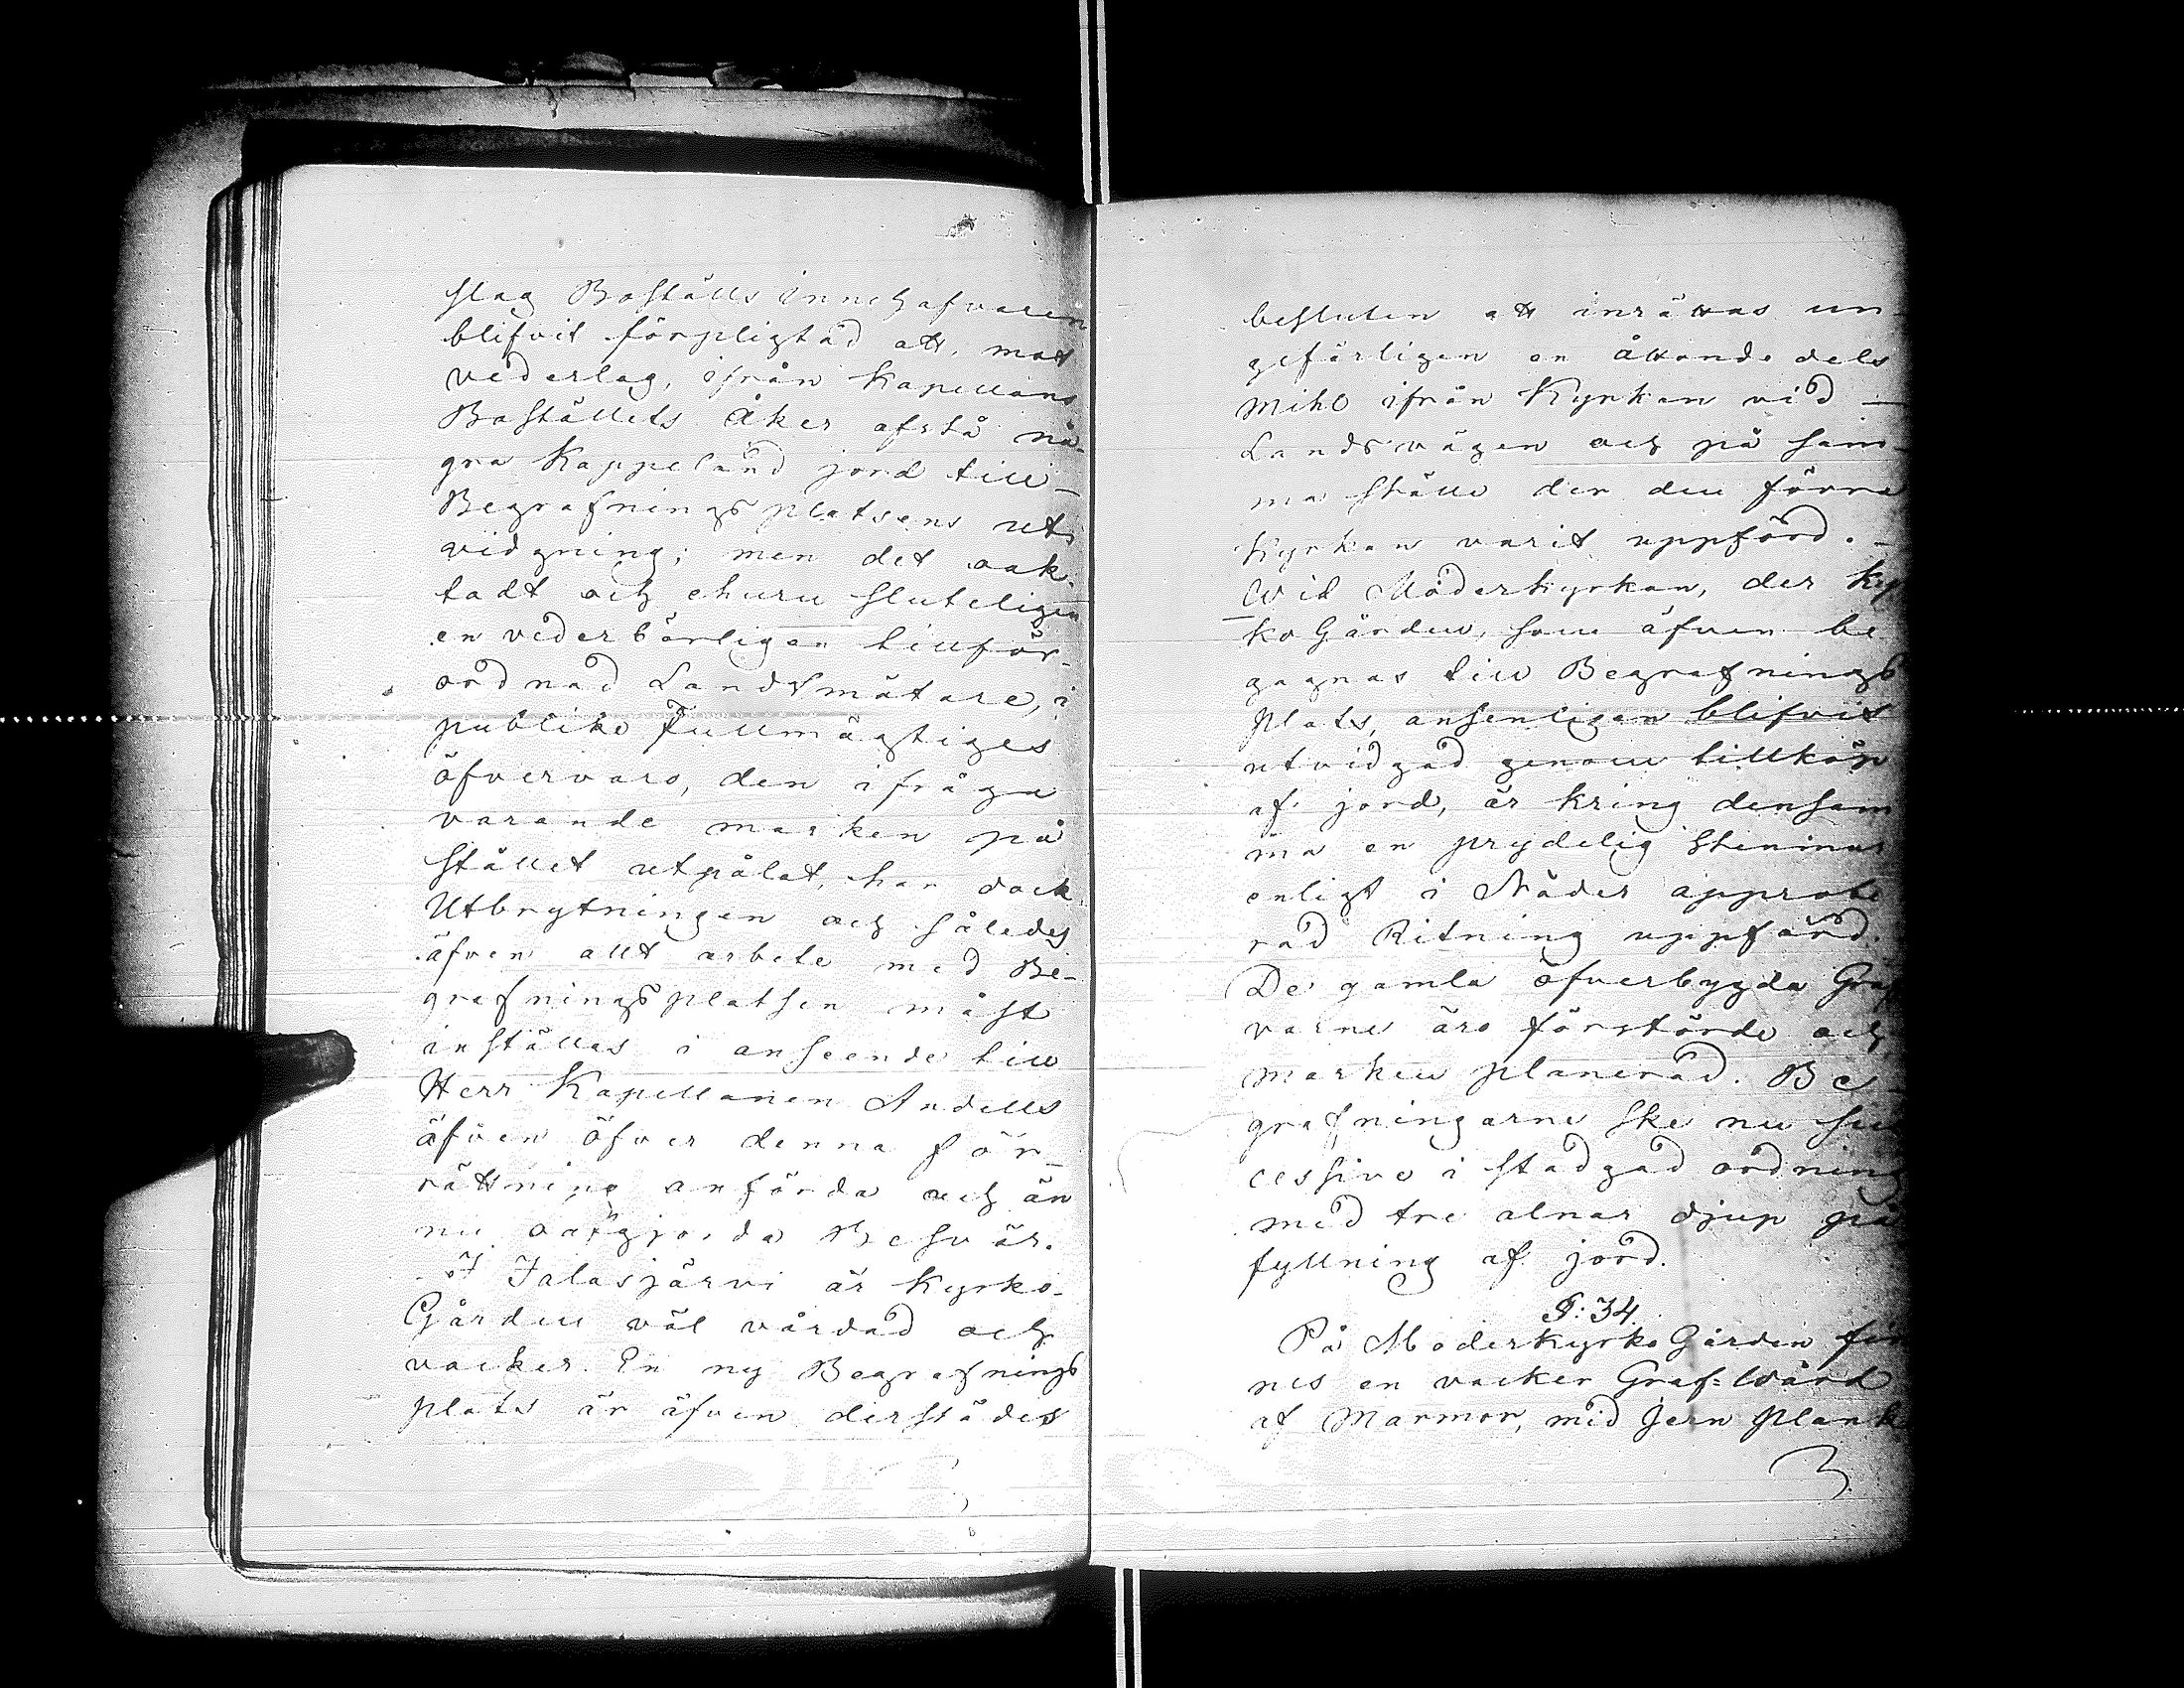 slag Boställs innehafvaren
blifvit förpligtad att, mot
vederlag, ifrån Kapellans
Boställets Åker afstå nå-
gra Kappeland jord till
Begrafningsplatsens ut-
vidgning; men det oak-
tadt och ehuru sluteligen
en vederbörligen tillför-
ordnad Landtmätare, i
publike Fullmägtiges
öfvervaro, den ifråga
varande marken på
stället utpålat, har dock
Utbrytningen och således
äfven allt arbete med Be-
grafningsplatsen måst
inställas i anseende till
Herr Kapellanen Andells
äfven öfver denna för-
rättning anförda och än
nu oafgjorda Besvär.
I Jalasjärvi är Kyrko-
Gården väl vårdad och
vacker. En ny Begrafnings
plats är äfven derstädes
besluten att inrättas un-
gefärligen en åttonde dels
Mihl ifrån Kyrkan vid
Landsvägen och på sam-
ma ställe der den förra
Kyrkan varit uppförd. -
Wid Moderkyrkan, der Kyr
ko Gården, som äfven be
gagnas till Begrafnings
Plats, ansenligen blifvit
utvidgad genom tillköp
af jord, är kring densam
ma en prydelig Stenmur
enligt i Nåder approbe
rad Ritning uppförd.
De gamla öfverbygda Graf
varne äro förstörde och
marken planerad. Be-
grafningarne ske nu suc
cessive i stadgad ordning
med tre alnar djup på
fyllning af jord.
§: 34.
På Moderkyrko Gården fin
nes en vacker Graf=Wård
af Marmor, med Jern Plank